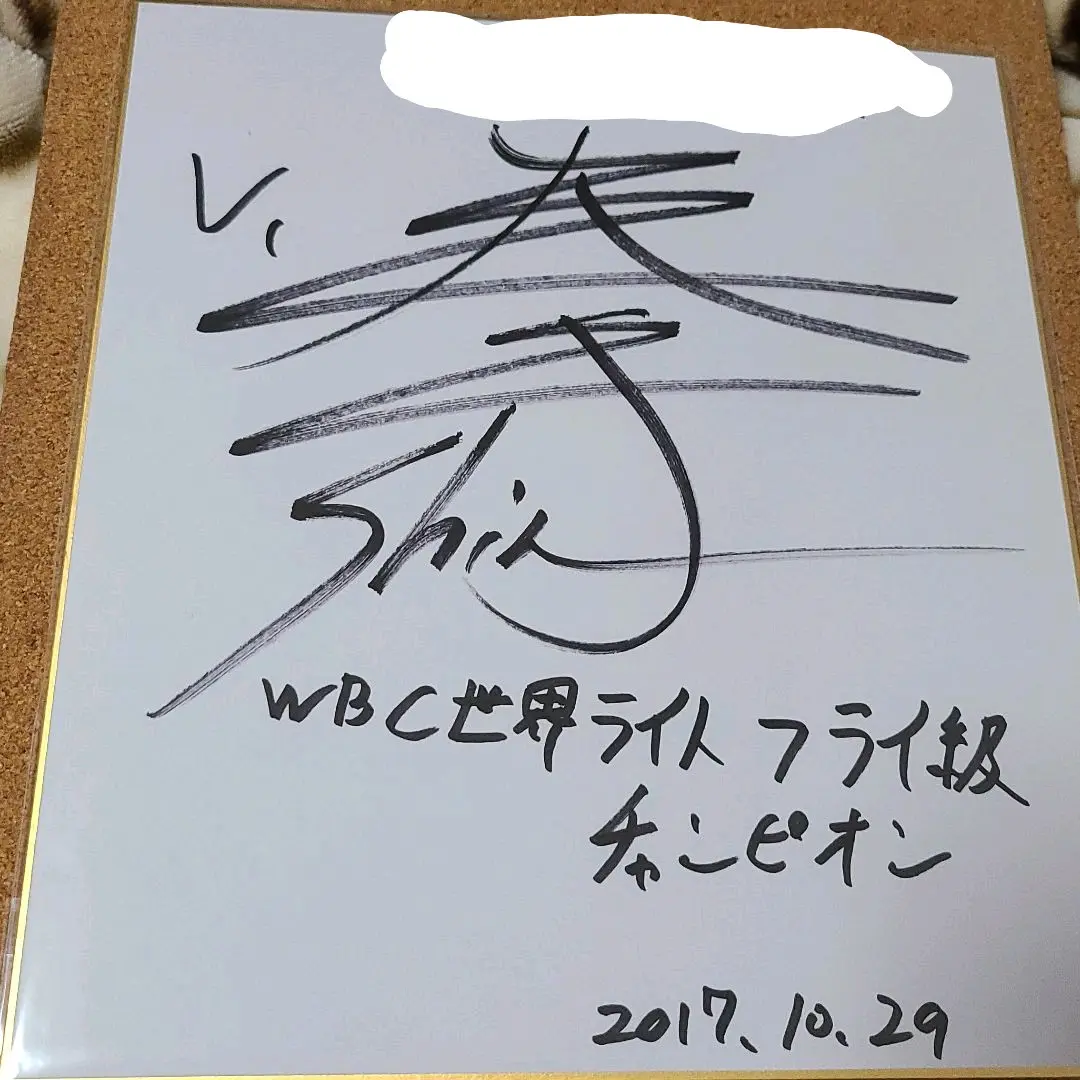 V、
拳
WBC世界ライトフライ級
チャンピオン
2017.10.29